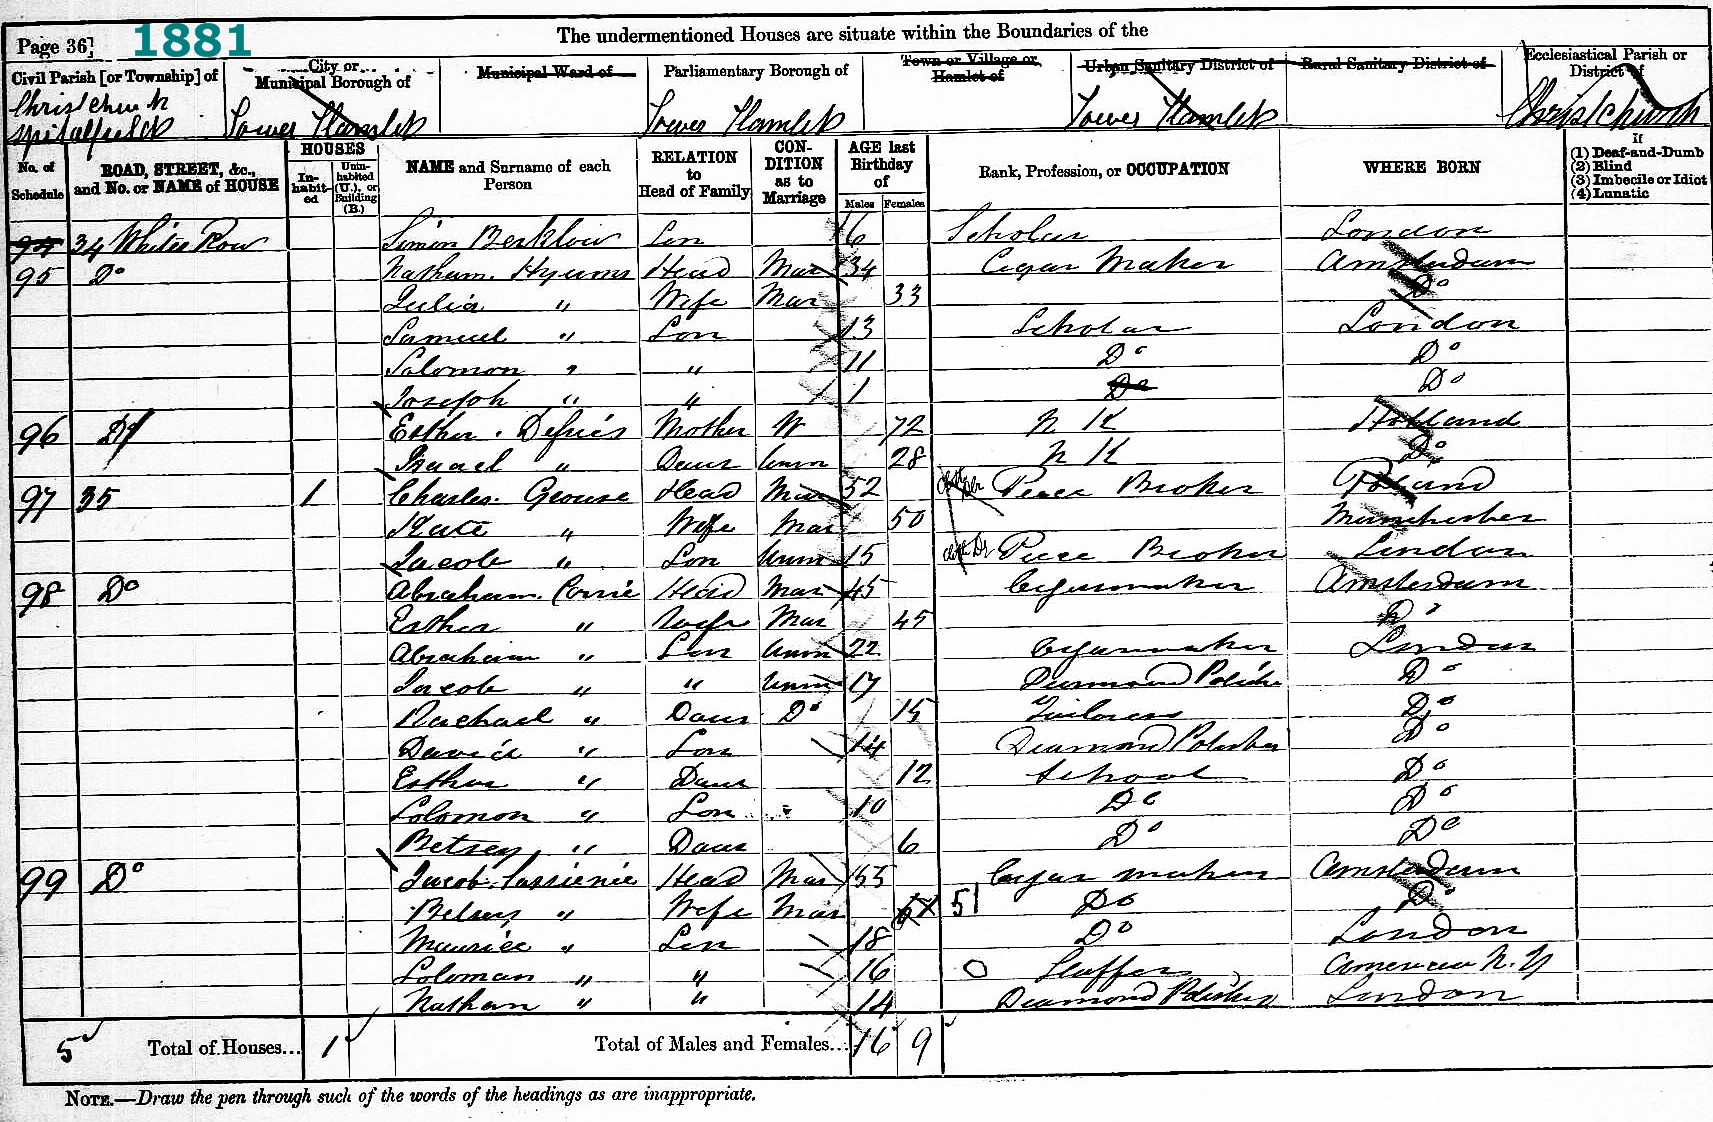 Page 36] 1881 The undermentioned Houses are situate within the Boundaries of the
Civil Parish [or Township] of City or Municipal Borough of Municipal Ward of Parliamentary Borough of Town or Village or Hamlet of Urban Sanitary District of Rural Sanitary District of Ecclesiastical Parish or District of
Christchurch Spitalfields Tower Hamlets Tower Hamlets Tower Hamlets Christchurch
No. of Schedule ROAD, STREET, &c., and No. or NAME of HOUSE HOUSES In-habit-ed Unin-habited (U.), or Building (B.) NAME and Surname of each Person RELATION to Head of Family CON-DITION as to Marriage AGE last Birthday of Males Females Rank, Profession, or OCCUPATION WHERE BORN If (1) Deaf-and-Dumb (2) Blind (3) Imbecile or Idiot (4) Lunatic
94 34 Whites Row Simon Son 6 Scholar London
95 Do Nathan Hyams Head Mar 34 Cigar Maker Amsterdam
Julia " Wife Mar 33 Do
Samuel " Son 13 Scholar London
Solomon " " 11 Do Do
Joseph " " 1 Do Do
96 Do Esther Defries Mother W 72 N K Holland
" Daur Unm 28 N K Do
97 35 1 Charles George Head Mar 52 Piece Broker Poland
Kate " Wife Mar 50 Manchester
Jacob " Son Unm 15 Piece Broker London
98 Do Abraham Head Mar 45 Cigarmaker Amsterdam
Esther " Wife Mar 45 Do
Abraham " Son Unm 22 Cigarmaker London
Jacob " " Unm 17 Diamond Do
Rachael " Daur Do 15 Tailoress Do
David " Son 14 Diamond Polisher Do
Esther " Daur 12 School Do
Solomon " Son 10 Do Do
Betsey " Daur 6 Do Do
99 Do Jacob Head Mar 55 Cigar maker Amsterdam
Betsey " Wife Mar 51 Do Do
Maurice " Son 18 Do London
Soloman " " 16 America N. Y
Nathan " " 14 Diamond Polisher London
5 Total of Houses... 1 Total of Males and Females... 16 9
NOTE.—Draw the pen through such of the words of the headings as are inappropriate.